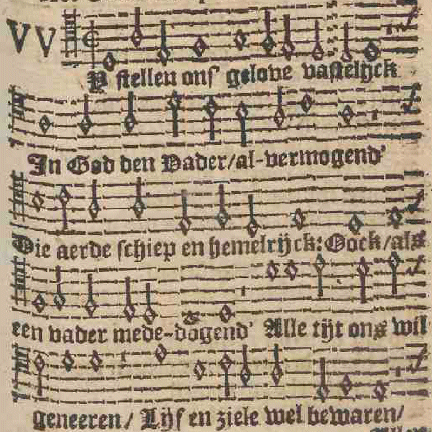 VVY stellen ons' gelove vastelijck
In God den Vader/al-vermogend'
Die aerde schiep en hemelrijck: Oock/als
een vader mede-dogend' Alle tijt ons wil
geneeren/ Lijf en ziele wel bewaren/